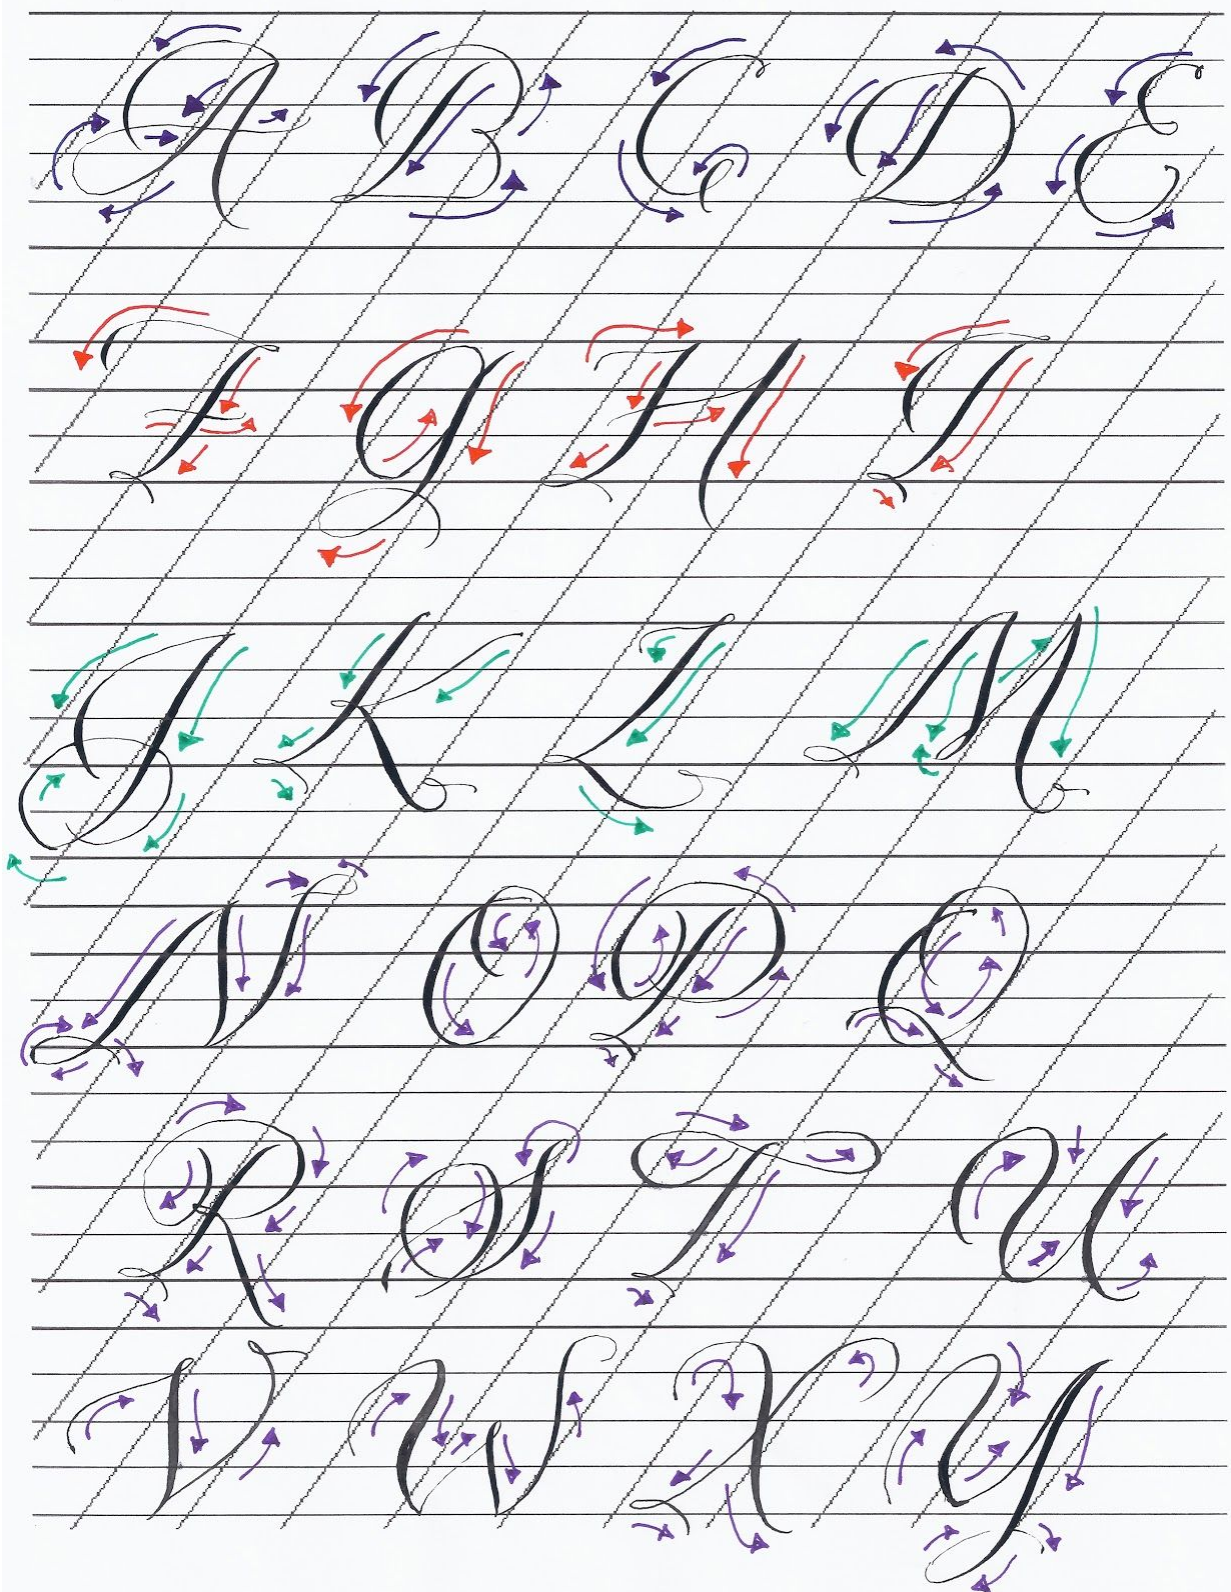 A B C D E
F G H I
J K L M
N O P Q
R S T U
V W X Y